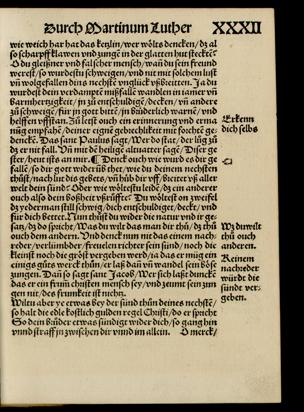 Durch Martinum Luther XXXII
wie weich har hat das ketzlin, wer wölts dencken, dz al
so scharpff klawen und zunge in der glatten hut stecke?
O du gleißner und falscher mensch, wan du sein freund
werest, so wurdestu schweigen, und nit mit solchem lust
un wolgefallen dins nechste unglück ußbreiten. Ja du
wurdest dein verdampte mißfalle wandlen in iamer un
barmhertzigkeit, jn zu entschuldige, decken, un andere
zu schweige, für jn gott bitte, jn brüderlich warne, und
helffen uffstan. Zu letst ouch ein erinnerung und erma
nung empfahe, deiner eigne gebrechlikeit mit forchte ge-
dencke. Das sant Paulus sagt, Wer do stat, der lug zu
dz er nit fall. Un mit de heilige altvatter sage, Diser ge
ster, heut ists an mir. Denck ouch wie wurd es dir ge
falle, so dir gott widerumb thet, wie du deinem nechsten
thust, nach lut dis gebets, un hüb dir uff, breitet uß aller
welt dein sünd. Oder wie wöltestu leide, dz ein anderer
ouch also dein boßheit ußrüffte? Du wöltest on zweifel
dz yederman still schwig, dich entschuldiget, deckt, und
für dich bettet. Nun thust du wider die natur und ir ge-
satz, dz do spricht, Was du wilt das man dir thu, dz thu
ouch dem andern. Und denck nun nit das einem nach-
reder, verlümbder, frevelen richter sein sünd, noch die
kleinst noch die gröst vergeben werd, ia das er mög ein
einigs guts werck thun, er laß dan un wandel sein böse
zungen. Dan so sagt sant Jacob, Wer sich laßt dunckt
das er ein frum christen mensch sey, und zeumt sein zun
gen nit, des frumkeit ist nichtz.
Wilt aber ye etwas bey der sünd thun deines nechste,
so halt die edle kostlich gulden regel Christi, do er spricht
So dein bruder etwas sündigt wider dich, so gang hin
unnd straff jn zwischen dir unnd im allein. O merck,
Erkenn
dich selbs
Wz du wilt
thu ouch
anderen.
Keinem
nachreder
würdt die
sünde ver-
geben.